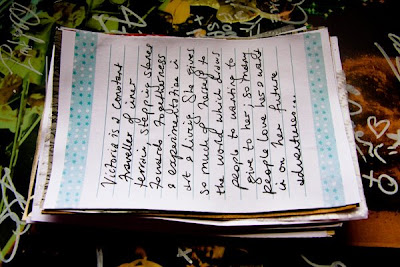 Victoria is a constant
traveller of inner
terrain, stepping stones
towards togetherness
& experimentation in
art & living. She gives
so much of herself to
the world which draws
people to wanting to
give to her; so many
people love her & wait
in on her future
adventures...